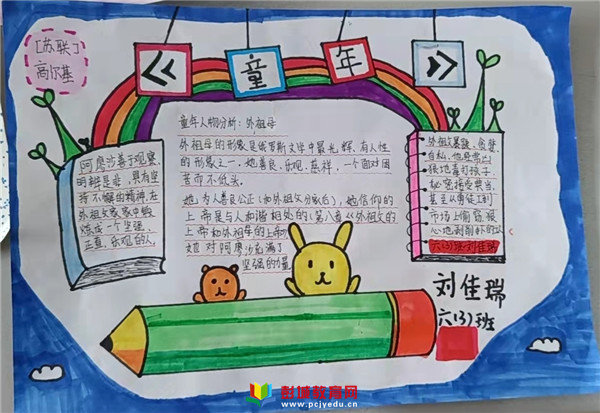 [苏联]
高尔基
《 童 年 》
阿廖沙善于观察
明辨是非,具有坚
持不懈的精神,在
外祖父家家中锻
炼成一个坚强、
正直、乐观的人。
童年人物分析:外祖母
外祖母的形象是俄罗斯文学中最光辉、有人性
的形象之一。她善良、乐观、慈祥,一个面对困
苦而不低头。
她为人善良公正(和外祖父分家后),她信仰的
上帝是与人和谐相处的(第八章《外祖父的
上帝和外祖母的上帝》)
她对阿廖沙充满了
坚强的力量
外祖父暴躁、贪婪
自私,他经常
狠地毒打孩子,
秘密接受典当,
甚至怂恿徒工到
市场上偷窃,狠
心地剥削
六(3)班刘佳瑞
刘佳瑞
六(3)班
彭城教育网
www.pcjyedu.cn